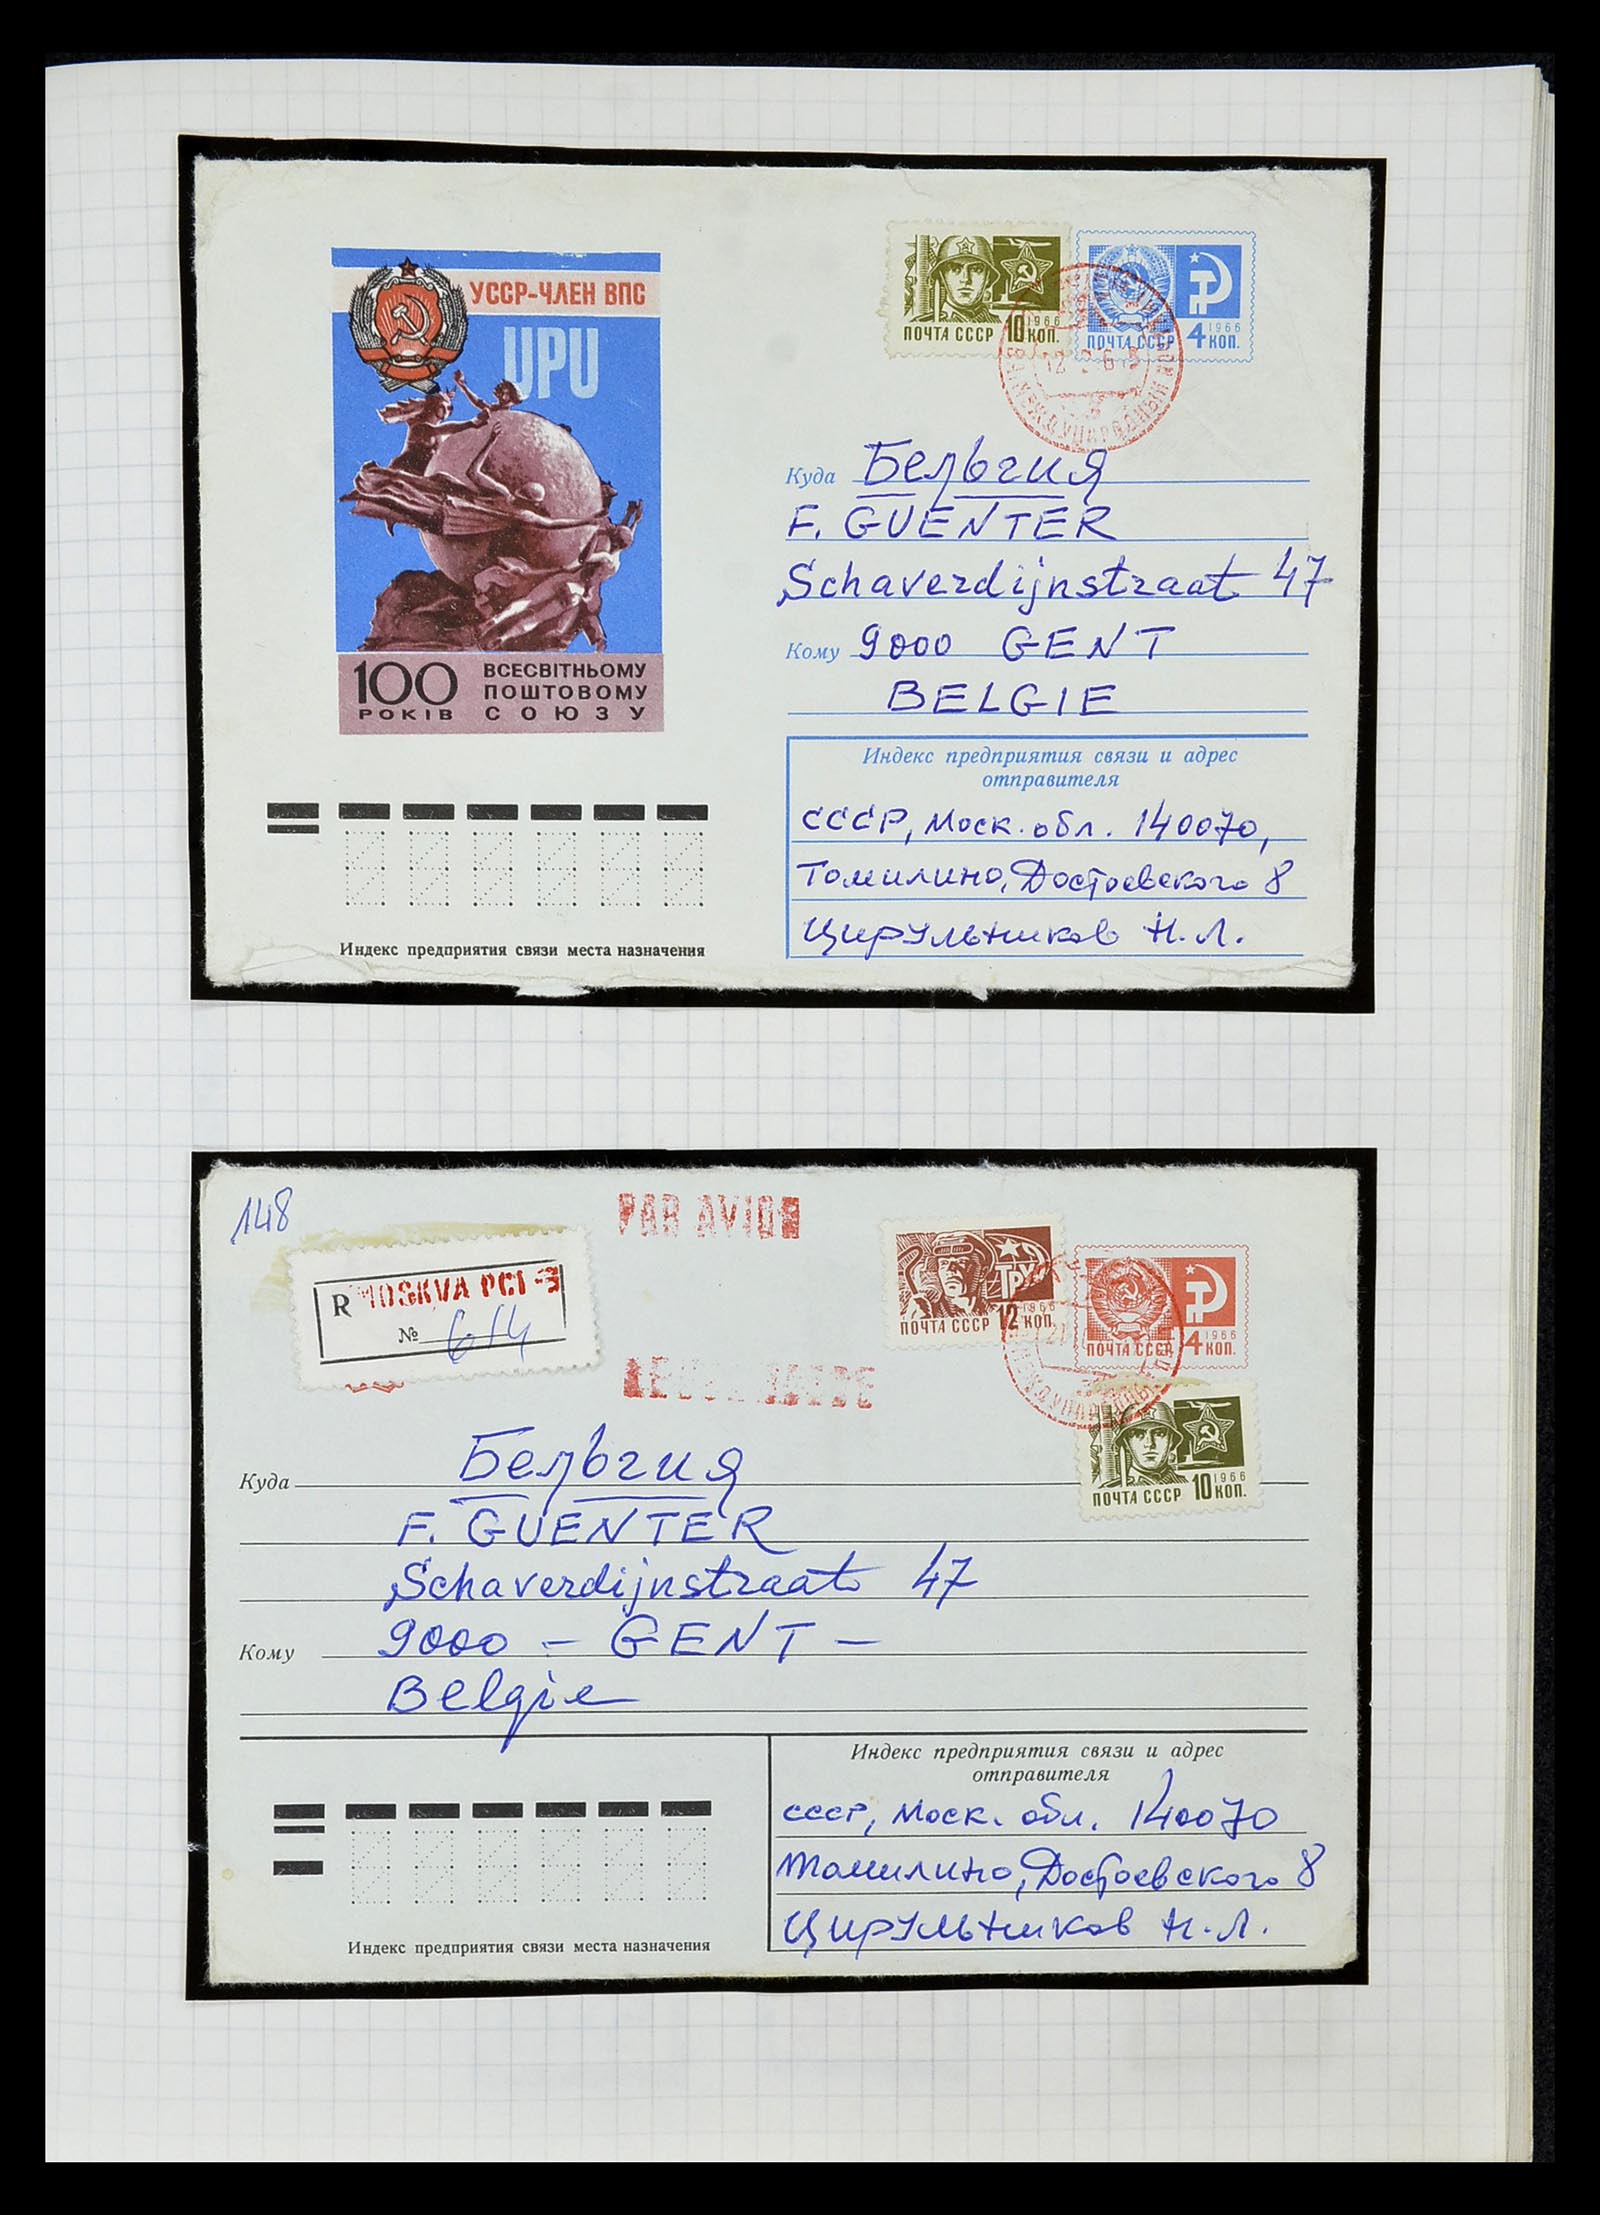 УССР-ЧЛЕН ВПС
UPU
100 РОКІВ
ВСЕСВІТНЬОМУ
ПОШТОВОМУ
СОЮЗУ
ПОЧТА СССР 10 КОП. 1966
ПОЧТА СССР 4 КОП. 1966
Куда Бельгия
F. GUENTER
Schaverdijnstraat 47
Кому 9000 GENT
BELGIE
Индекс предприятия связи и адрес
отправителя
СССР, Моск. обл. 140070,
Томилино, Достоевского 8
Цирульников Н. Л.
Индекс предприятия связи места назначения
148
PAR AVION
R MOSKVA PCI-3
№ 614
ПОЧТА СССР 12 КОП. 1966
ПОЧТА СССР 4 КОП. 1966
ПОЧТА СССР 10 КОП. 1966
Куда Бельгия
F. GUENTER
Schaverdijnstraat 47
Кому 9000 - GENT -
Belgie
Индекс предприятия связи и адрес
отправителя
СССР, Моск. обл. 140070
Томилино, Достоевского 8
Цирульников Н. Л.
Индекс предприятия связи места назначения